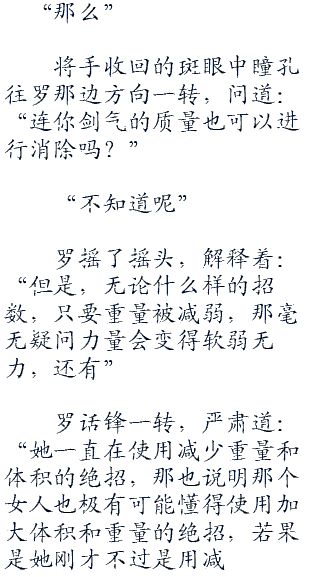 “那么”
将手收回的斑眼中瞳孔
往罗那边方向一转，问道：
“连你剑气的质量也可以进
行消除吗？”
“不知道呢”
罗摇了摇头，解释着：
“但是，无论什么样的招
数，只要重量被减弱，那毫
无疑问力量会变得软弱无
力，还有”
罗话锋一转，严肃道：
“她一直在使用减少重量和
体积的绝招，那也说明那个
女人也极有可能懂得使用加
大体积和重量的绝招，若果
是她刚才不过是用减